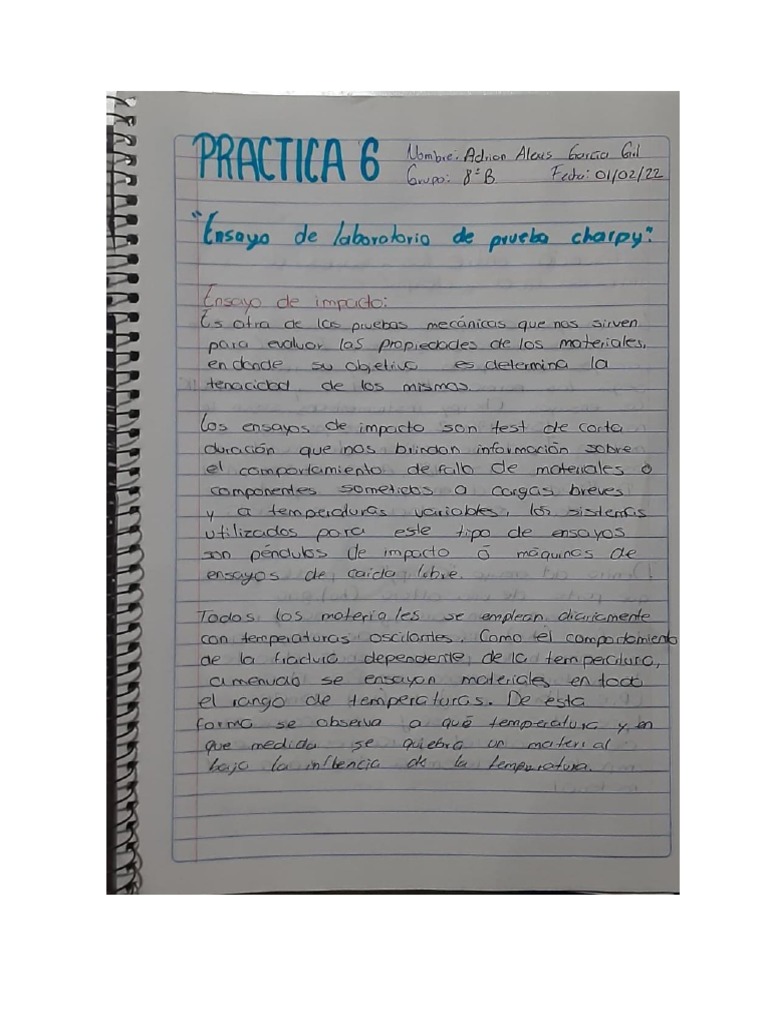 PRACTICA 6
Nombre: Adrian Alexis García Gil
Grupo: 8°B Fecha: 01/02/22
"Ensayo de laboratorio de prueba charpy".
Ensayo de impacto:
Es otra de las pruebas mecánicas que nos sirven
para evaluar las propiedades de los materiales,
en donde su objetivo es determina la
tenacidad de los mismos.
Los ensayos de impacto son test de corta
duración que nos brindan información sobre
el comportamiento de fallo de materiales o
componentes sometidos a cargas breves
y a temperaturas variables, los sistemas
utilizados para este tipo de ensayos
son péndulos de impacto ó máquinas de
ensayos de caída libre.
Todos los materiales se emplean diariamente
con temperaturas oscilantes. Como el comportamiento
de la fractura dependente de la temperatura,
a menudo se ensayan materiales en todo
el rango de temperaturas. De esta
forma se observa a qué temperatura y en
que medida se quiebra un material
bajo la inflencia de la temperatura.